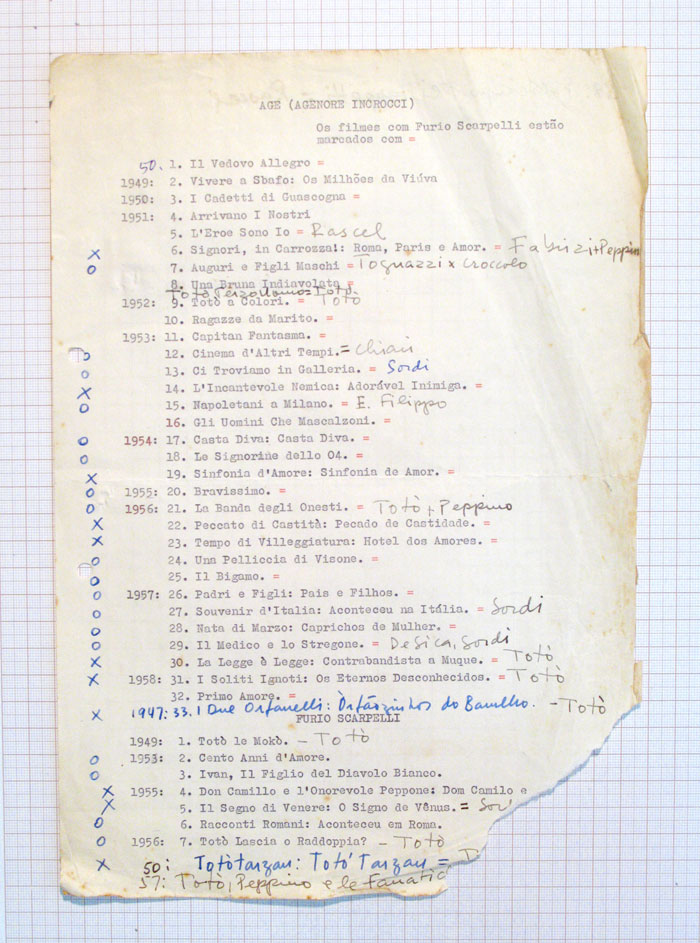 AGE (AGENORE INCROCCI)
Os filmes com Furio Scarpelli estão
marcados com =
50. 1. Il Vedovo Allegro =
1949: 2. Vivere a Sbafo: Os Milhões da Viúva
1950: 3. I Cadetti di Guascogna =
1951: 4. Arrivano I Nostri
5. L'Eroe Sono Io = Rascel
X 6. Signori, in Carrozza!: Roma, Paris e Amor. = Fabrizi+Peppino
O 7. Auguri e Figli Maschi = Tognazzi x Croccolo
8. Una Bruna Indiavolata =
Totò Terzo Uomo = Totò
1952: 9. Totò a Colori. = Totò
10. Ragazze da Marito. =
1953: 11. Capitan Fantasma. =
O 12. Cinema d'Altri Tempi. = Chiari
O 13. Ci Troviamo in Galleria. = Sordi
X 14. L'Incantevole Nemica: Adorável Inimiga. =
O 15. Napoletani a Milano. = E. Filippo
16. Gli Uomini Che Mascalzoni. =
O 1954: 17. Casta Diva: Casta Diva. =
O 18. Le Signorine dello 04. =
X 19. Sinfonia d'Amore: Sinfonia de Amor. =
O 1955: 20. Bravissimo. =
O 1956: 21. La Banda degli Onesti. = Totò + Peppino
X 22. Peccato di Castità: Pecado de Castidade. =
X 23. Tempo di Villeggiatura: Hotel dos Amores. =
O 24. Una Pelliccia di Visone. =
O 25. Il Bigamo. =
O 1957: 26. Padri e Figli: Pais e Filhos. =
O 27. Souvenir d'Italia: Aconteceu na Itália. = Sordi
O 28. Nata di Marzo: Caprichos de Mulher. =
O 29. Il Medico e lo Stregone. = De Sica, Sordi
X 30. La Legge è Legge: Contrabandista a Muque. = Totò
X 1958: 31. I Soliti Ignoti: Os Eternos Desconhecidos. = Totò
32. Primo Amore. =
X 1947: 33. I Due Orfanelli: Órfãozinhos do Barulho. - Totò
FURIO SCARPELLI
1949: 1. Totò le Mokò. - Totò
O 1953: 2. Cento Anni d'Amore.
O 3. Ivan, Il Figlio del Diavolo Bianco.
X 1955: 4. Don Camillo e l'Onorevole Peppone: Dom Camilo e
X 5. Il Segno di Venere: O Signo de Vênus. = Sor
O 6. Racconti Romani: Aconteceu em Roma.
O 1956: 7. Totò Lascia o Raddoppia? - Totò
X 50: Totòtarzan: Totò Tarzan = T
57: Totò, Peppino e le Fanatic